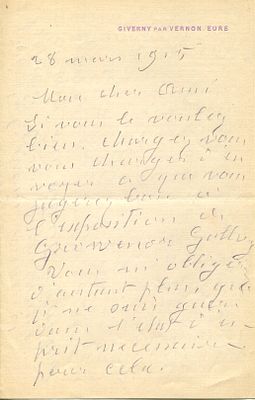 GIVERNY PAR VERNON. EURE
28 mars 1915
Mon cher ami
Si vous le voulez
bien. chargez vous
vous charger d'en
voyer ce que vous
jugerez bon à
l'exposition de
Grosvenor Gallery
Vous m'obligez
d'autant plus que
je ne suis guère
dans l'état d'es
prit necessaire
pour cela.